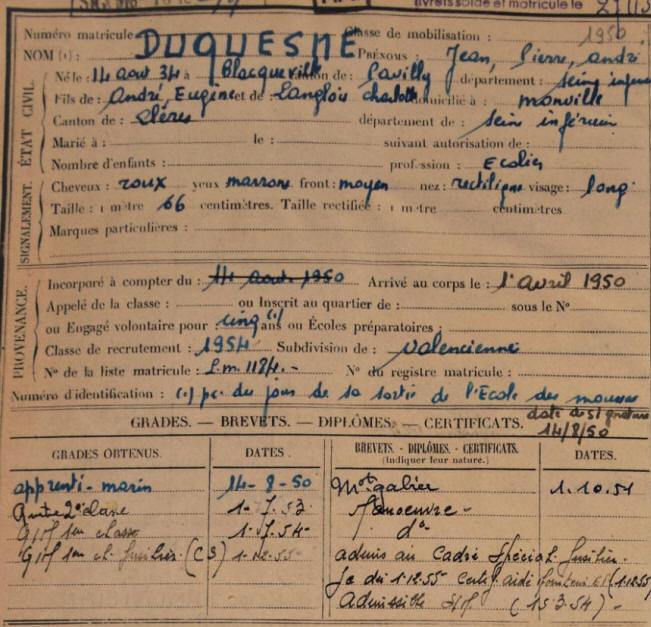 livrets solde et matricule le
Numéro matricule Classe de mobilisation : 1950
NOM (1) : DUQUESNE PRÉNOMS : Jean, Pierre, andré
ÉTAT CIVIL.
Né le : 14 aout 34 à Blacqueville de : Pavilly département : seine inferieu
Fils de : André, Eugène et de Langlois charlotte domicilié à : monville
Canton de : Clères département de : sein inférieur
Marié à : le : suivant autorisation de :
Nombre d'enfants : profession : Ecolier
SIGNALEMENT.
Cheveux : roux yeux marrons front : moyen nez : rectiligne visage : long
Taille : 1 mètre 66 centimètres. Taille rectifiée : 1 mètre centimètres
Marques particulières :
PROVENANCE.
Incorporé à compter du : 14 aout 1950 Arrivé au corps le : 1er avril 1950
Appelé de la classe : ou Inscrit au quartier de : sous le N°
ou Engagé volontaire pour cinq (1) ans ou Écoles préparatoires :
Classe de recrutement : 1954 Subdivision de : Valencienne
N° de la liste matricule : L.m. 1184.- N° du registre matricule :
Numéro d'identification : (1) pc. du jour de sa sortie de l'Ecole des mousses
date de signature
14/8/50
GRADES. — BREVETS. — DIPLÔMES. — CERTIFICATS.
GRADES OBTENUS. DATES. BREVETS. - DIPLÔMES. - CERTIFICATS. DATES.
(Indiquer leur nature.)
apprenti-marin 14-8-50 Mot gabier 1.10.51
2e classe 1-7.53 Manoeuvre -
1er classe 1-7.54- do-
1er cl. fusilier (CS) 1-12-55- admis au Cadre Spécial fusilier.
du 1-12.55 Certif (1-12-55)
Admissible (15 3.54) -